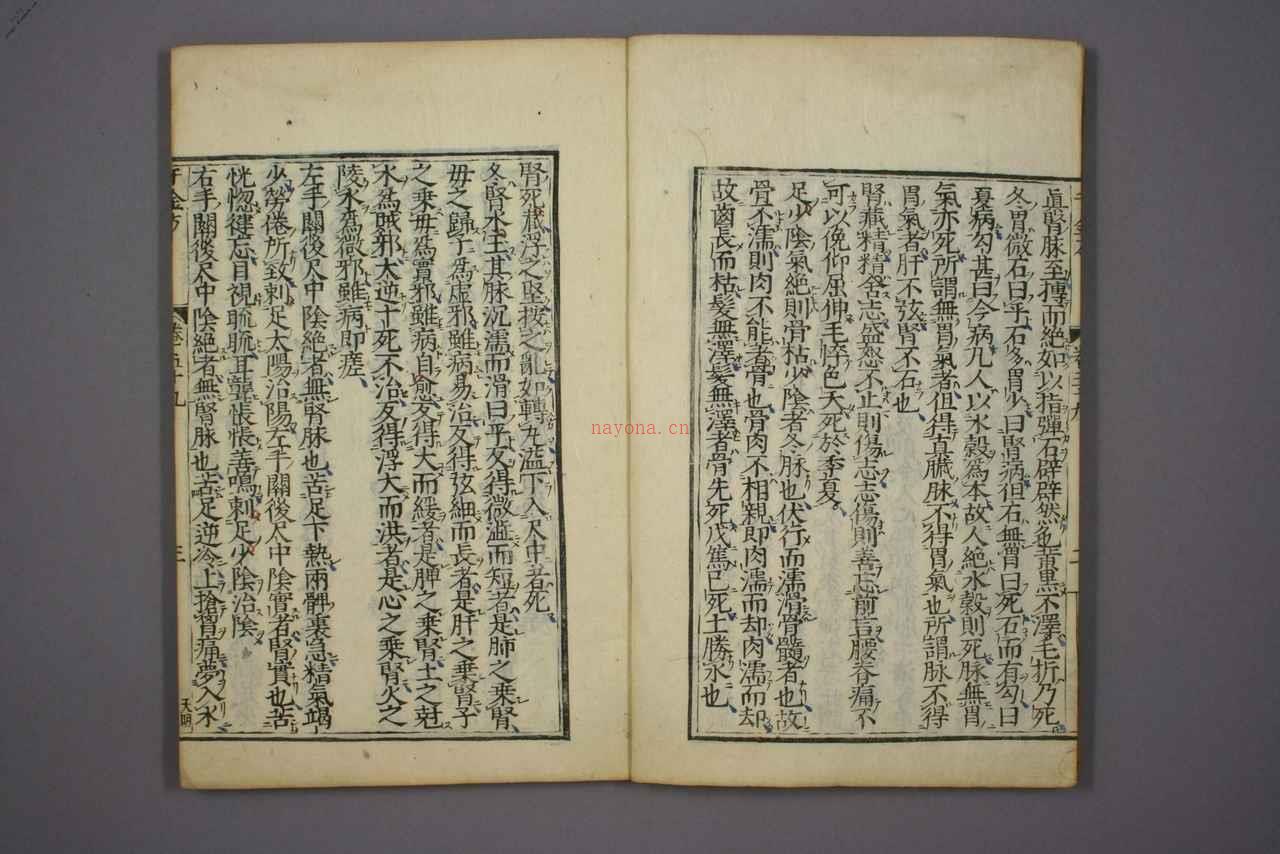 眞腎脉至摶而絶如以指彈石辟辟然色黃黒不澤毛折乃死
冬胃微石曰平石多胃少曰腎病但石無胃曰死石而有勾曰
夏病勾甚曰今病凡人以水穀爲本故人絶水穀則死脉無胃
氣亦死所謂無胃氣者但得真臓脉不得胃氣也所謂脉不得
胃氣者肝不弦腎不石也
腎藏精精舍志盛怒不止則傷志志傷則善忘前言腰脊痛不
可以俛仰屈伸毛悴色夭死於季夏
足少陰氣絶則骨枯少陰者冬脉也伏行而濡滑骨髓者也故
骨不濡則肉不能著骨也骨肉不相親即肉濡而却肉濡而却
故齒長而枯髮無澤髮無澤者骨先死戊篤己死土勝水也
千金方
卷五十九
二
腎死藏浮之堅按之亂如轉丸溢下入尺中者死
冬腎水王其脉沉濡而滑曰平反得微濇而短者是肺之乗腎
毋之歸子爲虚邪雖病易治反得弦細而長者是肝之乗腎子
之乗毋爲實邪雖病自愈反得大而緩者是脾之乗腎土之尅
水爲賊邪大逆十死不治反得浮大而洪者是心之乗腎火之
陵水爲微邪雖病即瘥
左手關後尺中陰絶者無腎脉也苦足下熱兩髀裏急精氣竭
少勞倦所致刺足太陽治陽左手關後尺中陰實者腎實也苦
恍惚健忘目視䀮䀮耳聾悵悵善鳴刺足少陰治陰
右手關後尺中陰絶者無腎脉也苦足逆冷上搶胷痛夢入水
千金方
卷五十九
三
天明
nayona.cn